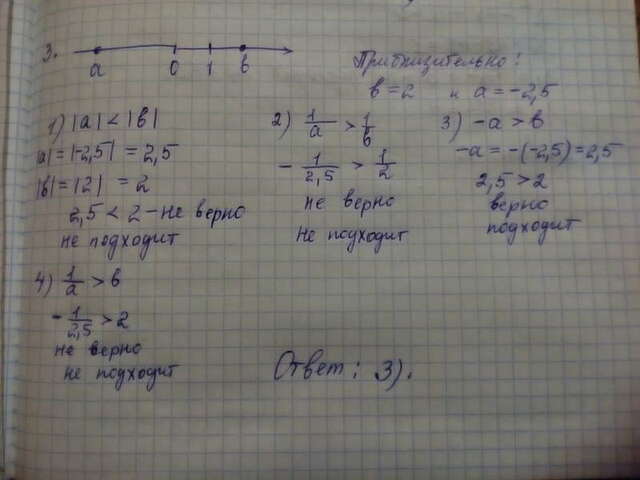 3.
a 0 1 b
Приблизительно:
b = 2 и a = -2,5
1) |a| < |b|
|a| = |-2,5| = 2,5
|b| = |2| = 2
2,5 < 2 - не верно
не подходит
2) 1/a > 1/b
- 1/2,5 > 1/2
не верно
Не подходит
3) -a > b
-a = -(-2,5) = 2,5
2,5 > 2
верно
подходит
4) 1/a > b
- 1/2,5 > 2
не верно
не подходит
Ответ: 3).